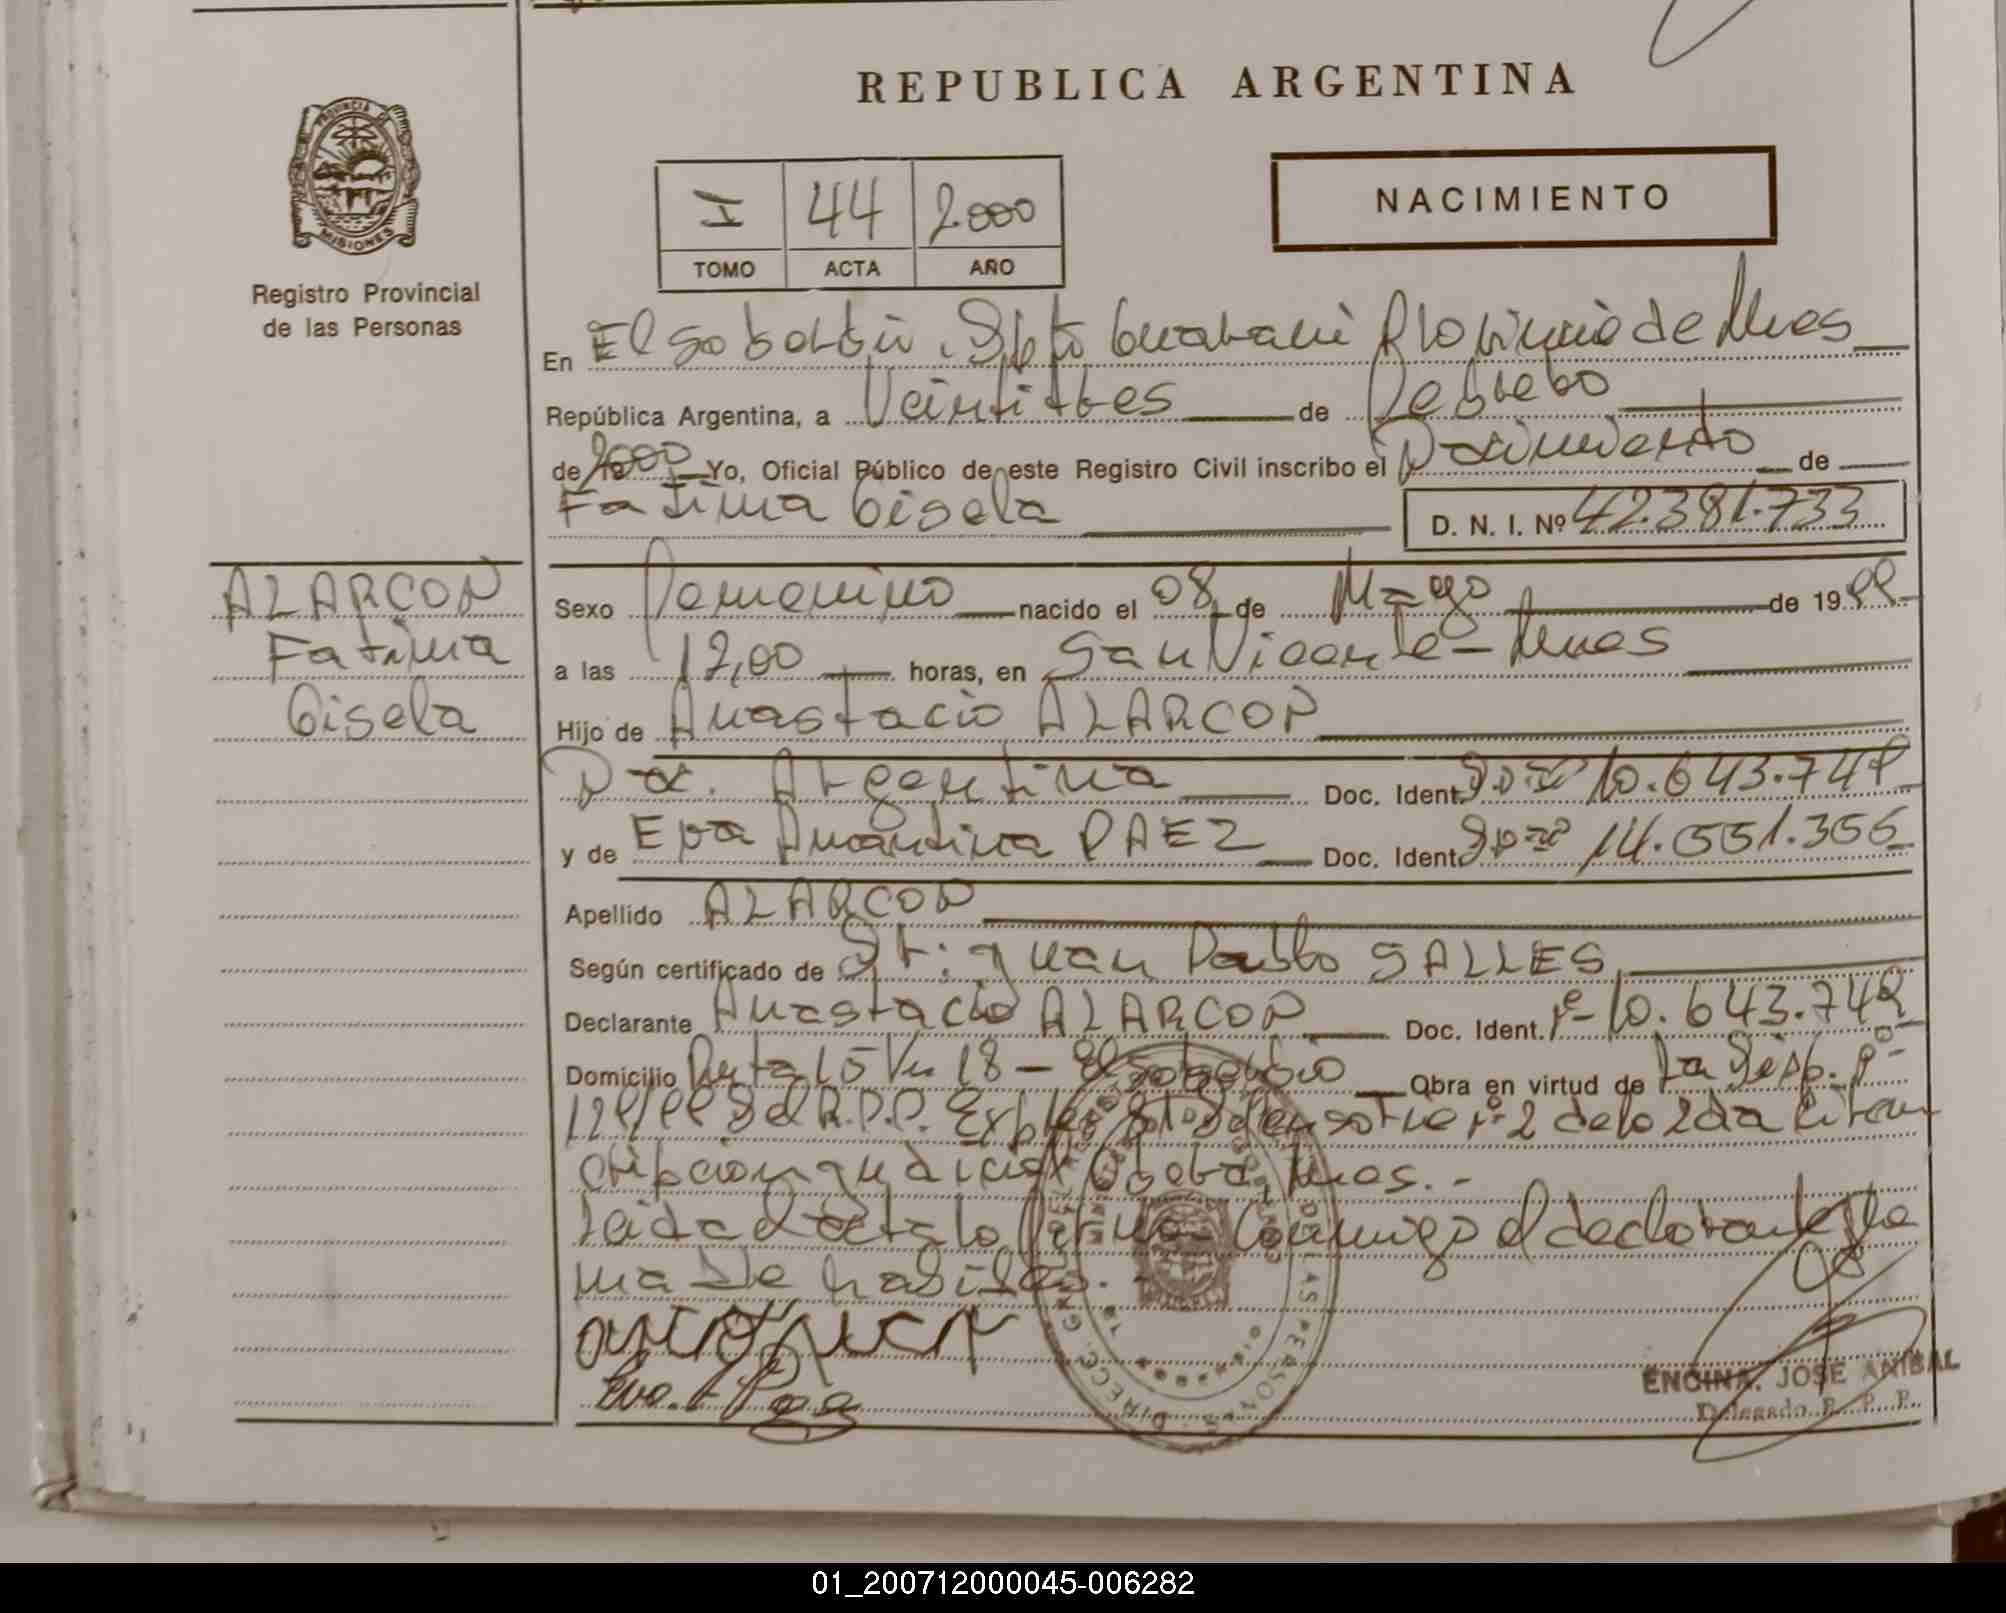 REPUBLICA ARGENTINA
PROVINCIA DE
MISIONES
Registro Provincial
de las Personas
I 44 2000
TOMO ACTA AÑO
NACIMIENTO
En El Soberbio, Dpto Guarani Provincia de Mnes
República Argentina, a Veintitres de Febrero
de 2000 Yo, Oficial Público de este Registro Civil inscribo el Nacimiento de
Fatima Gisela D. N. I. Nº 42.381.733
ALARCON
Fatima
Gisela
Sexo Femenino nacido el 08 de Mayo de 1999
a las 12,00 horas, en San Vicente - Mnes
Hijo de Anastacio ALARCON
Nac. Argentina Doc. Ident. 10.643.749
y de Eva PAEZ Doc. Ident. 14.551.356
Apellido ALARCON
Según certificado de Dr: Juan Pablo SALLES
Declarante Anastacio ALARCON Doc. Ident. 10.643.749
Domicilio Ruta 15 Km 18 - El Soberbio Obra en virtud de La Disp. nº
del R.P.P. nº 2 de la 2da Circun
cripcion Judicial Obera, Mnes. -
Leida el acta la firma conmigo el declarante y la
madre
Eva
ENCINA, JOSE ANIBAL
Delegado R. P. P.
01_200712000045-006282